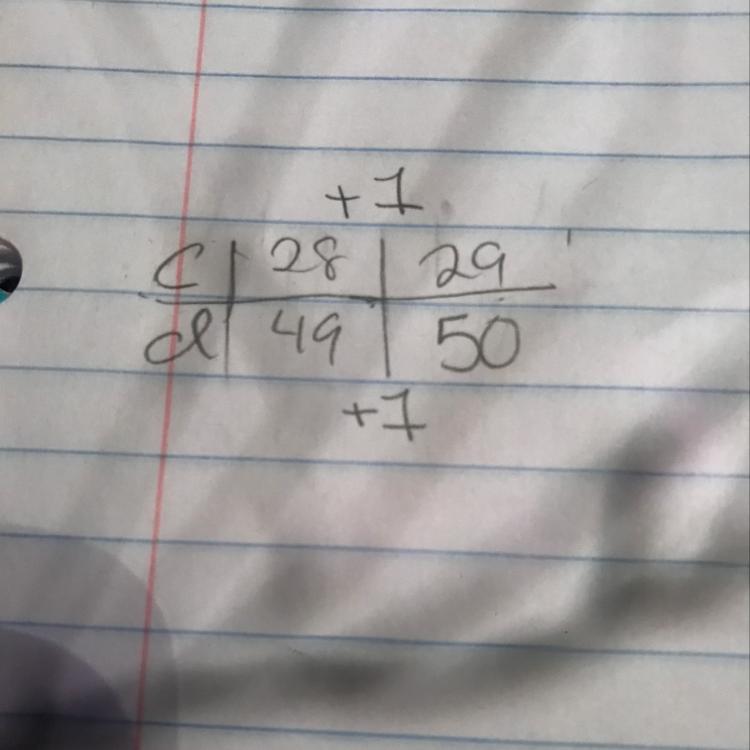 +1
c | 28 | 29
d | 49 | 50
+1